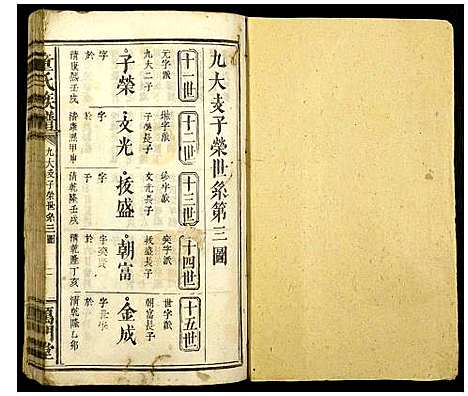 九大支子榮世系第三圖
十一世
元字派
九大二子
子榮
字
於
清康熙壬戌
十二世
子榮長子
文光
字
清康熙甲申
十三世
文光長子
拔盛
字
於
清乾隆壬戌
十四世
奕字派
拔盛長子
朝富
於
清乾隆丁亥
十五世
世字派
朝富長子
金成
於
清乾隆乙卯
氏族譜
九大支子榮世系三圖